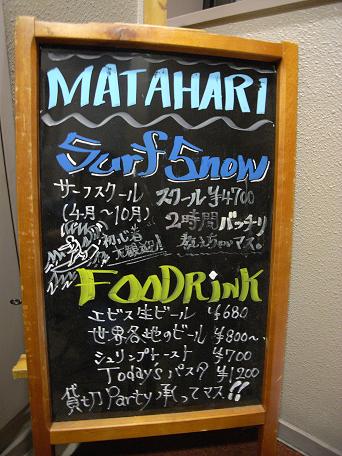 MATAHARI
Surf Snow
サーフスクール スクール ¥4700
(4月〜10月) 2時間バッチリ
初心者大歓迎! 教えちゃいマス!
FOODRiNK
エビス生ビール ¥680
世界各地のビール ¥800〜
シュリンプトースト ¥700
Today's パスタ ¥1200
貸切 Party 承ってマス!!